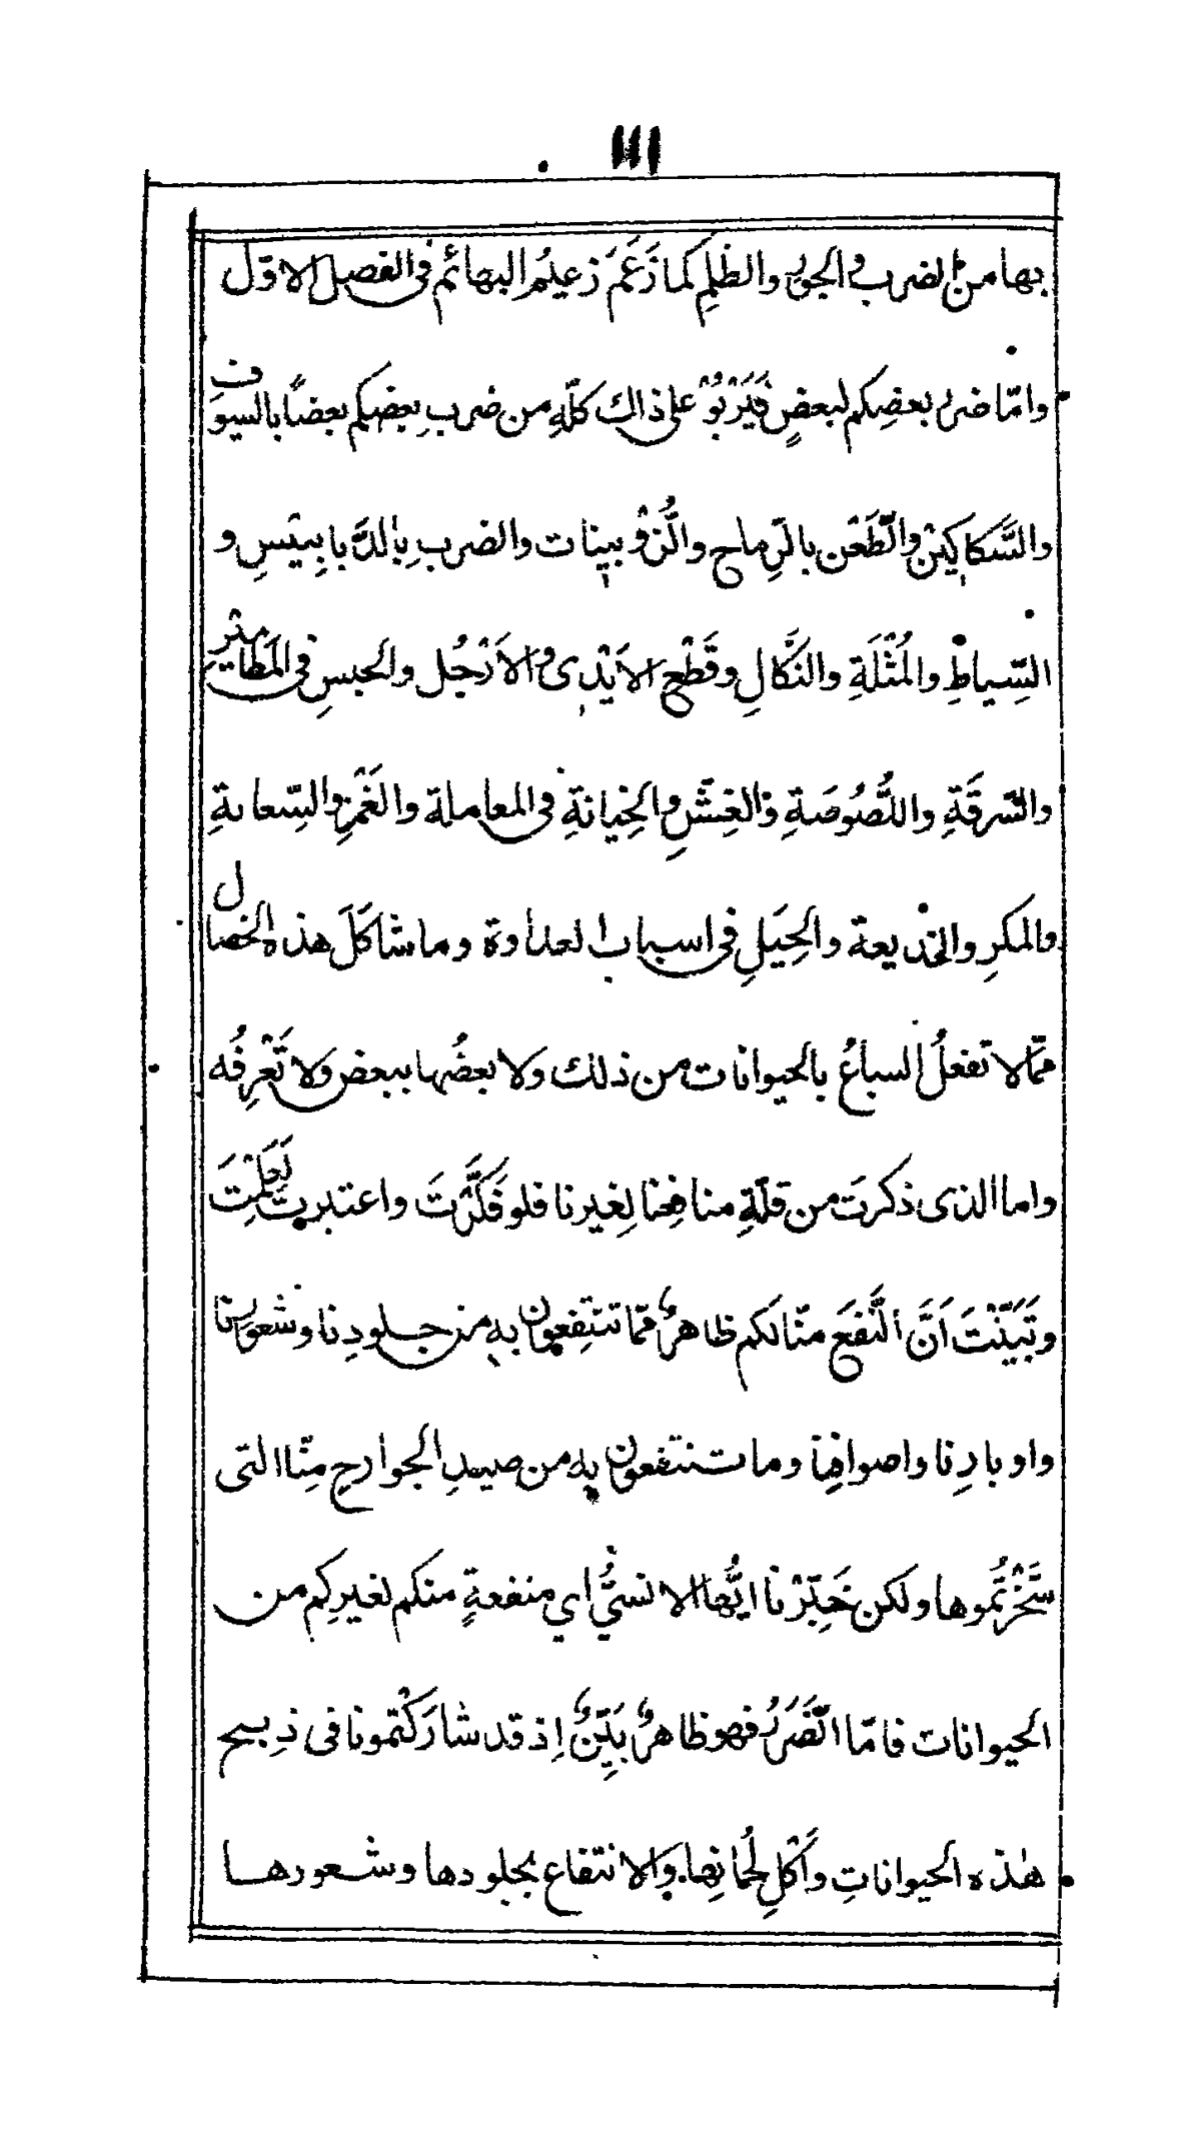 ١١١
بها من الضرب والجور والظلمِ كما زَعَمَ زعيمُ البهائم فى الفصل الاوّل
وامّا ضرر بعضِكم لبعضٍ فَيَرْبُوْ على ذالك كلّهِ من ضربِ بعضِكم بعضًا بالسيوف
والسَّكاكِيْن والطَّعْن بالرِّماح والزُّوْبينات والضربِ بالدَّبابِيْسِ و
السِّياطِ والمُثْلَةِ والنَّكالِ وقَطْعِ الايْدِى والاَرْجُل والحبسِ فى المَطَامِيْرِ
والسَّرقَةِ واللُّصُوصَةِ والغِشِّ والخِيانةِ فى المعاملة والغَمْزِ والسِّعايةِ
والمكرِ والخديعة والحِيَلِ فى اسباب العداوة وما شاكَلَ هذه الخصال
ممّا لا تفعلُ السباعُ بالحيوانات من ذلك ولا بعضُها ببعض ولا تَعْرِفُه
واما الذى ذكرتَ من قلّةِ منافِعنا لِغيرنا فلو فَكَّرْتَ واعتبرتَ لَعَلِمْتَ
وتَبَيَّنْتَ اَنَّ النَّفعَ منّا لكم ظاهرٌ ممّا تنتَفِعون بهِ من جلودِنا وشعورِنا
واوبارِنا واصوافِنا وما تنتفعون بهِ من صيدِ الجوارحِ مِنّا التى
سَخَّرْتُموها ولكن خَبِّرْنا ايُّها الانسىُّ اي منفعةٍ منكم لغيرِكم من
الحيوانات فامّا الضَّرَرُ فهو ظاهرٌ بَيِّنٌ اِذ قد شارَكْتمونا فى ذِبح
هٰذه الحيواناتِ واَكْلِ لُحمانِها والانتفاع بجلودها وشعورها